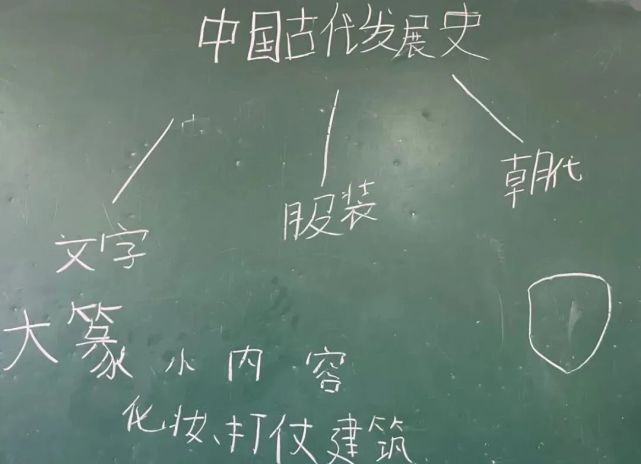 中国古代发展史
朝代
服装
文字
大篆 小 内 容
化妆、打仗建筑